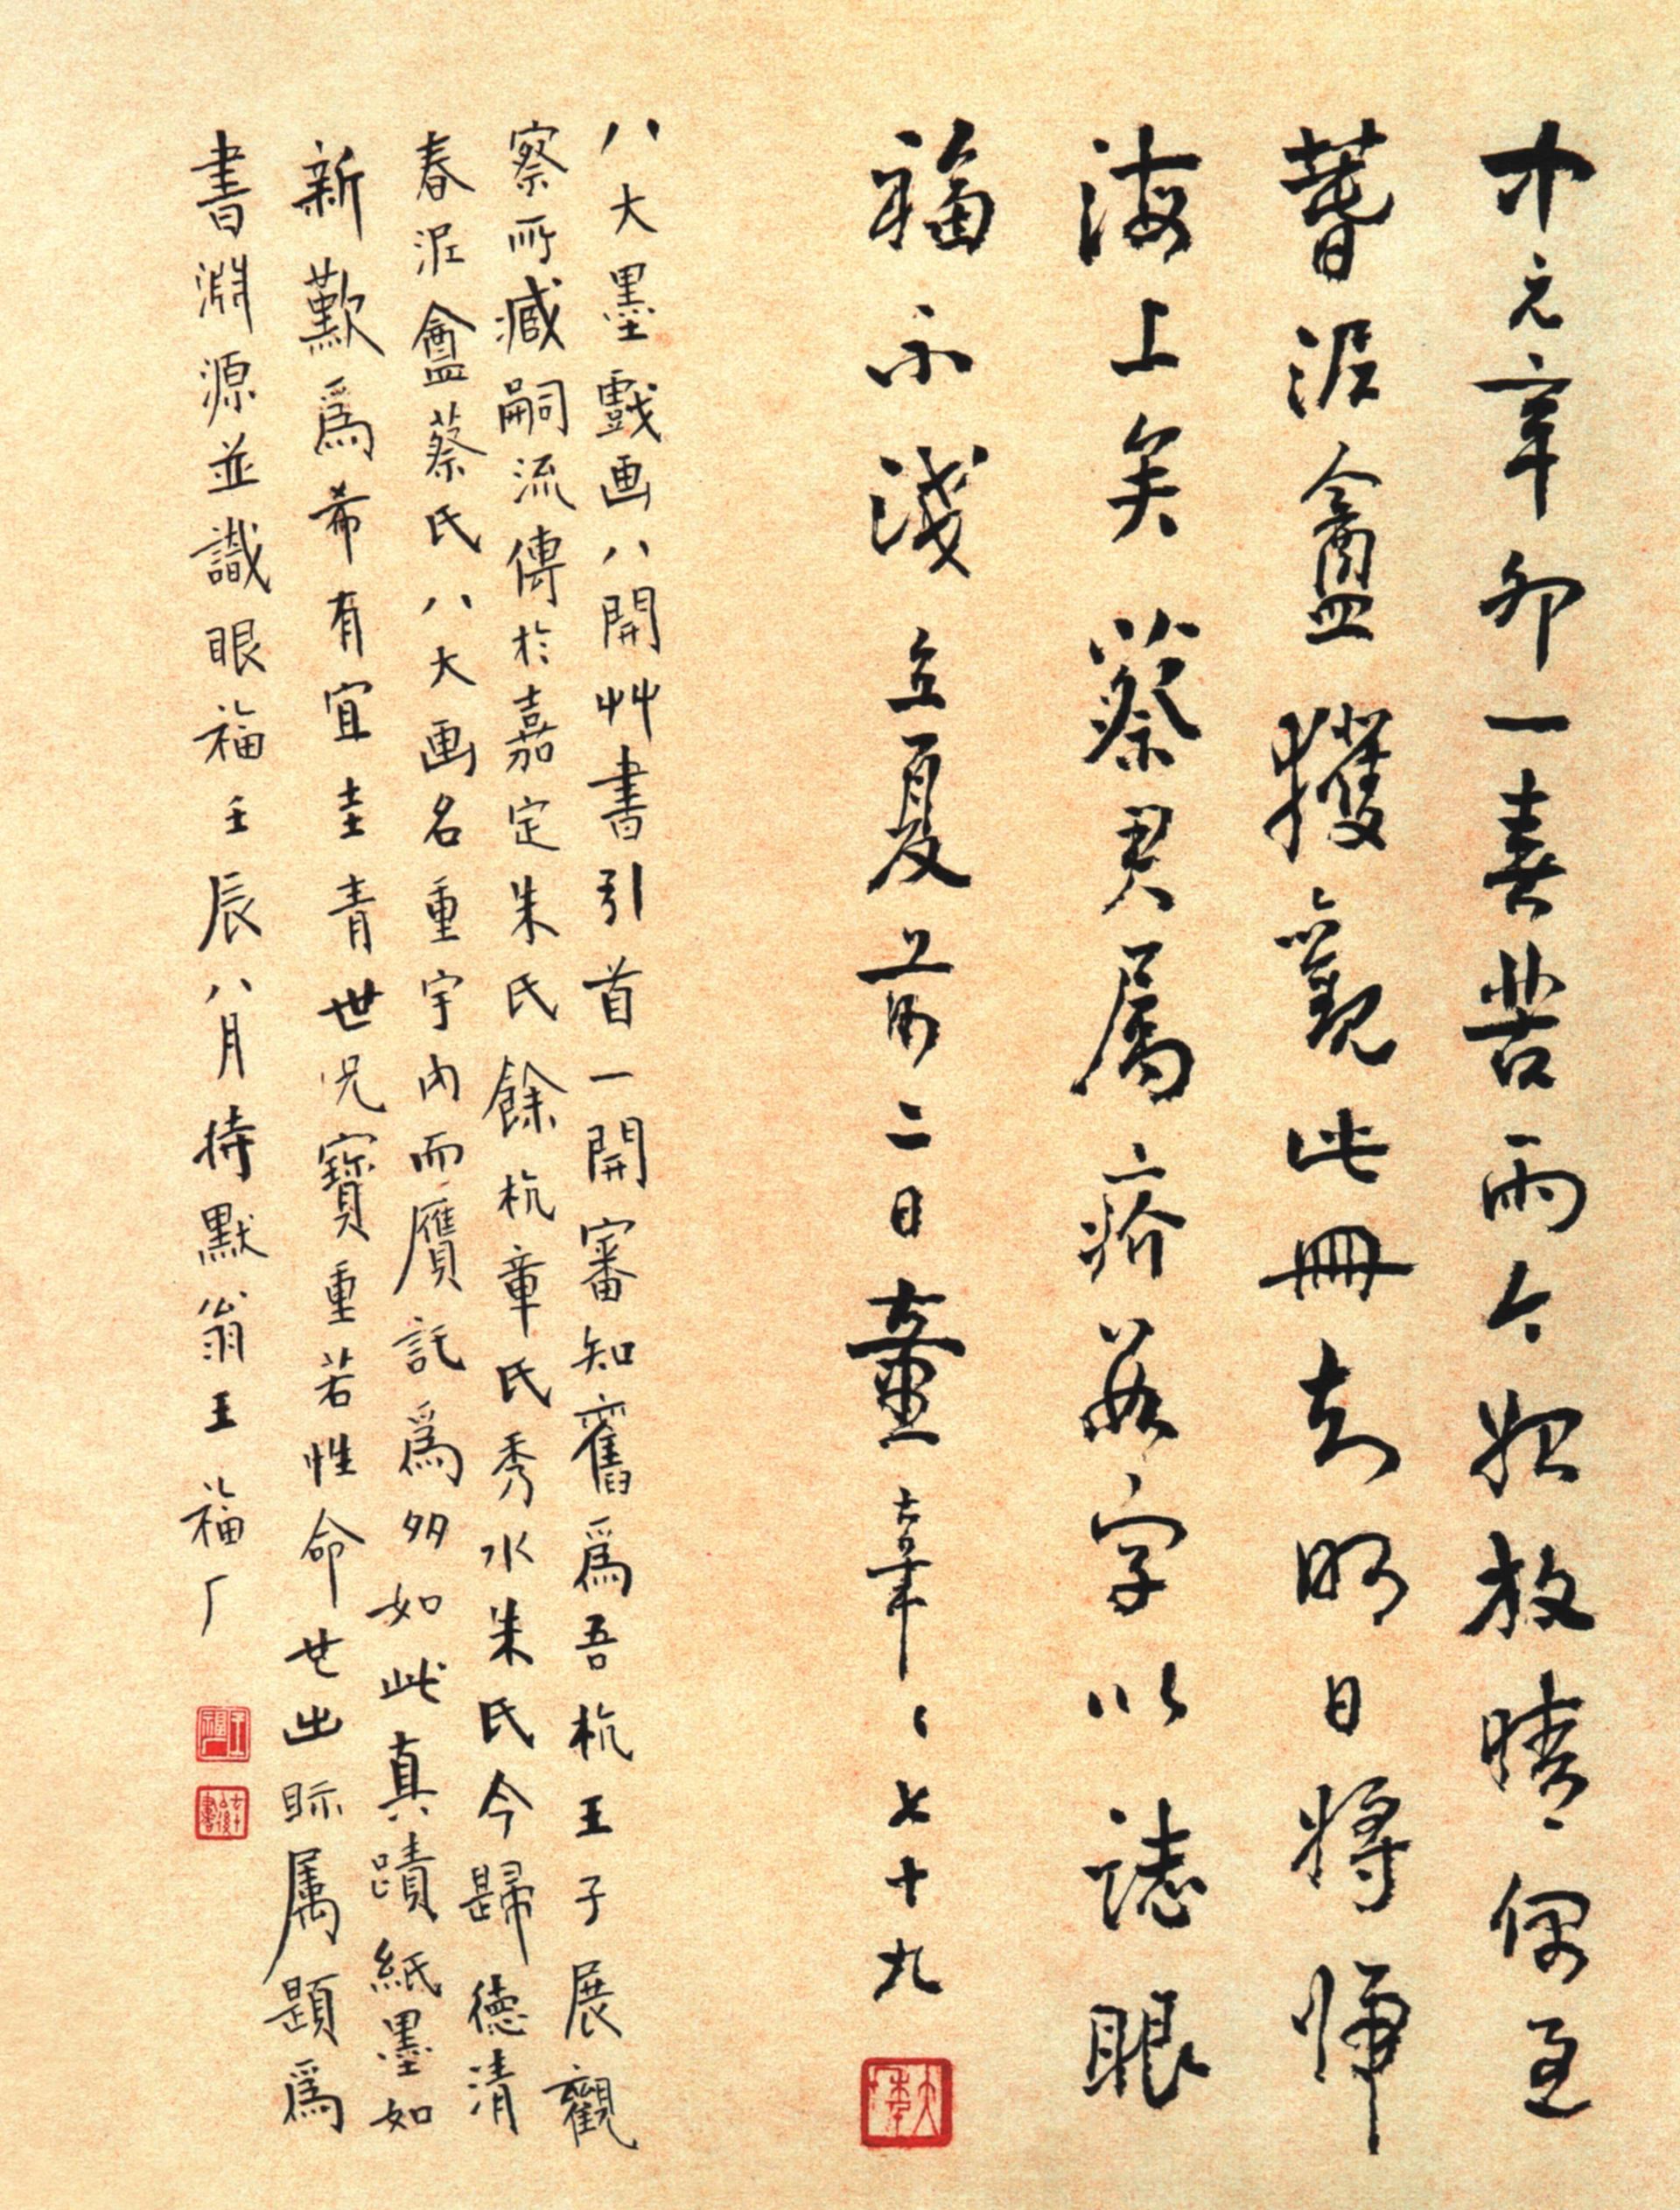 中元辛卯一春苦雨今始放晴偶至
萅泥盦獲觀此冊去明日將歸
海上矣蔡君属疥數字以誌眼
福不淺立夏前二日童 七十九
八大墨戲画八開艸書引首一開審知舊爲吾杭王子展觀
察所臧嗣流傳於嘉定朱氏餘杭章氏秀水朱氏今歸德清
春泥盦蔡氏八大画名重宇内而贋託爲多如此真蹟紙墨如
新歎爲希有宜圭青世兄寶重若性命世出眎属題爲
書淵源並識眼福壬辰八月持默翁王福厂